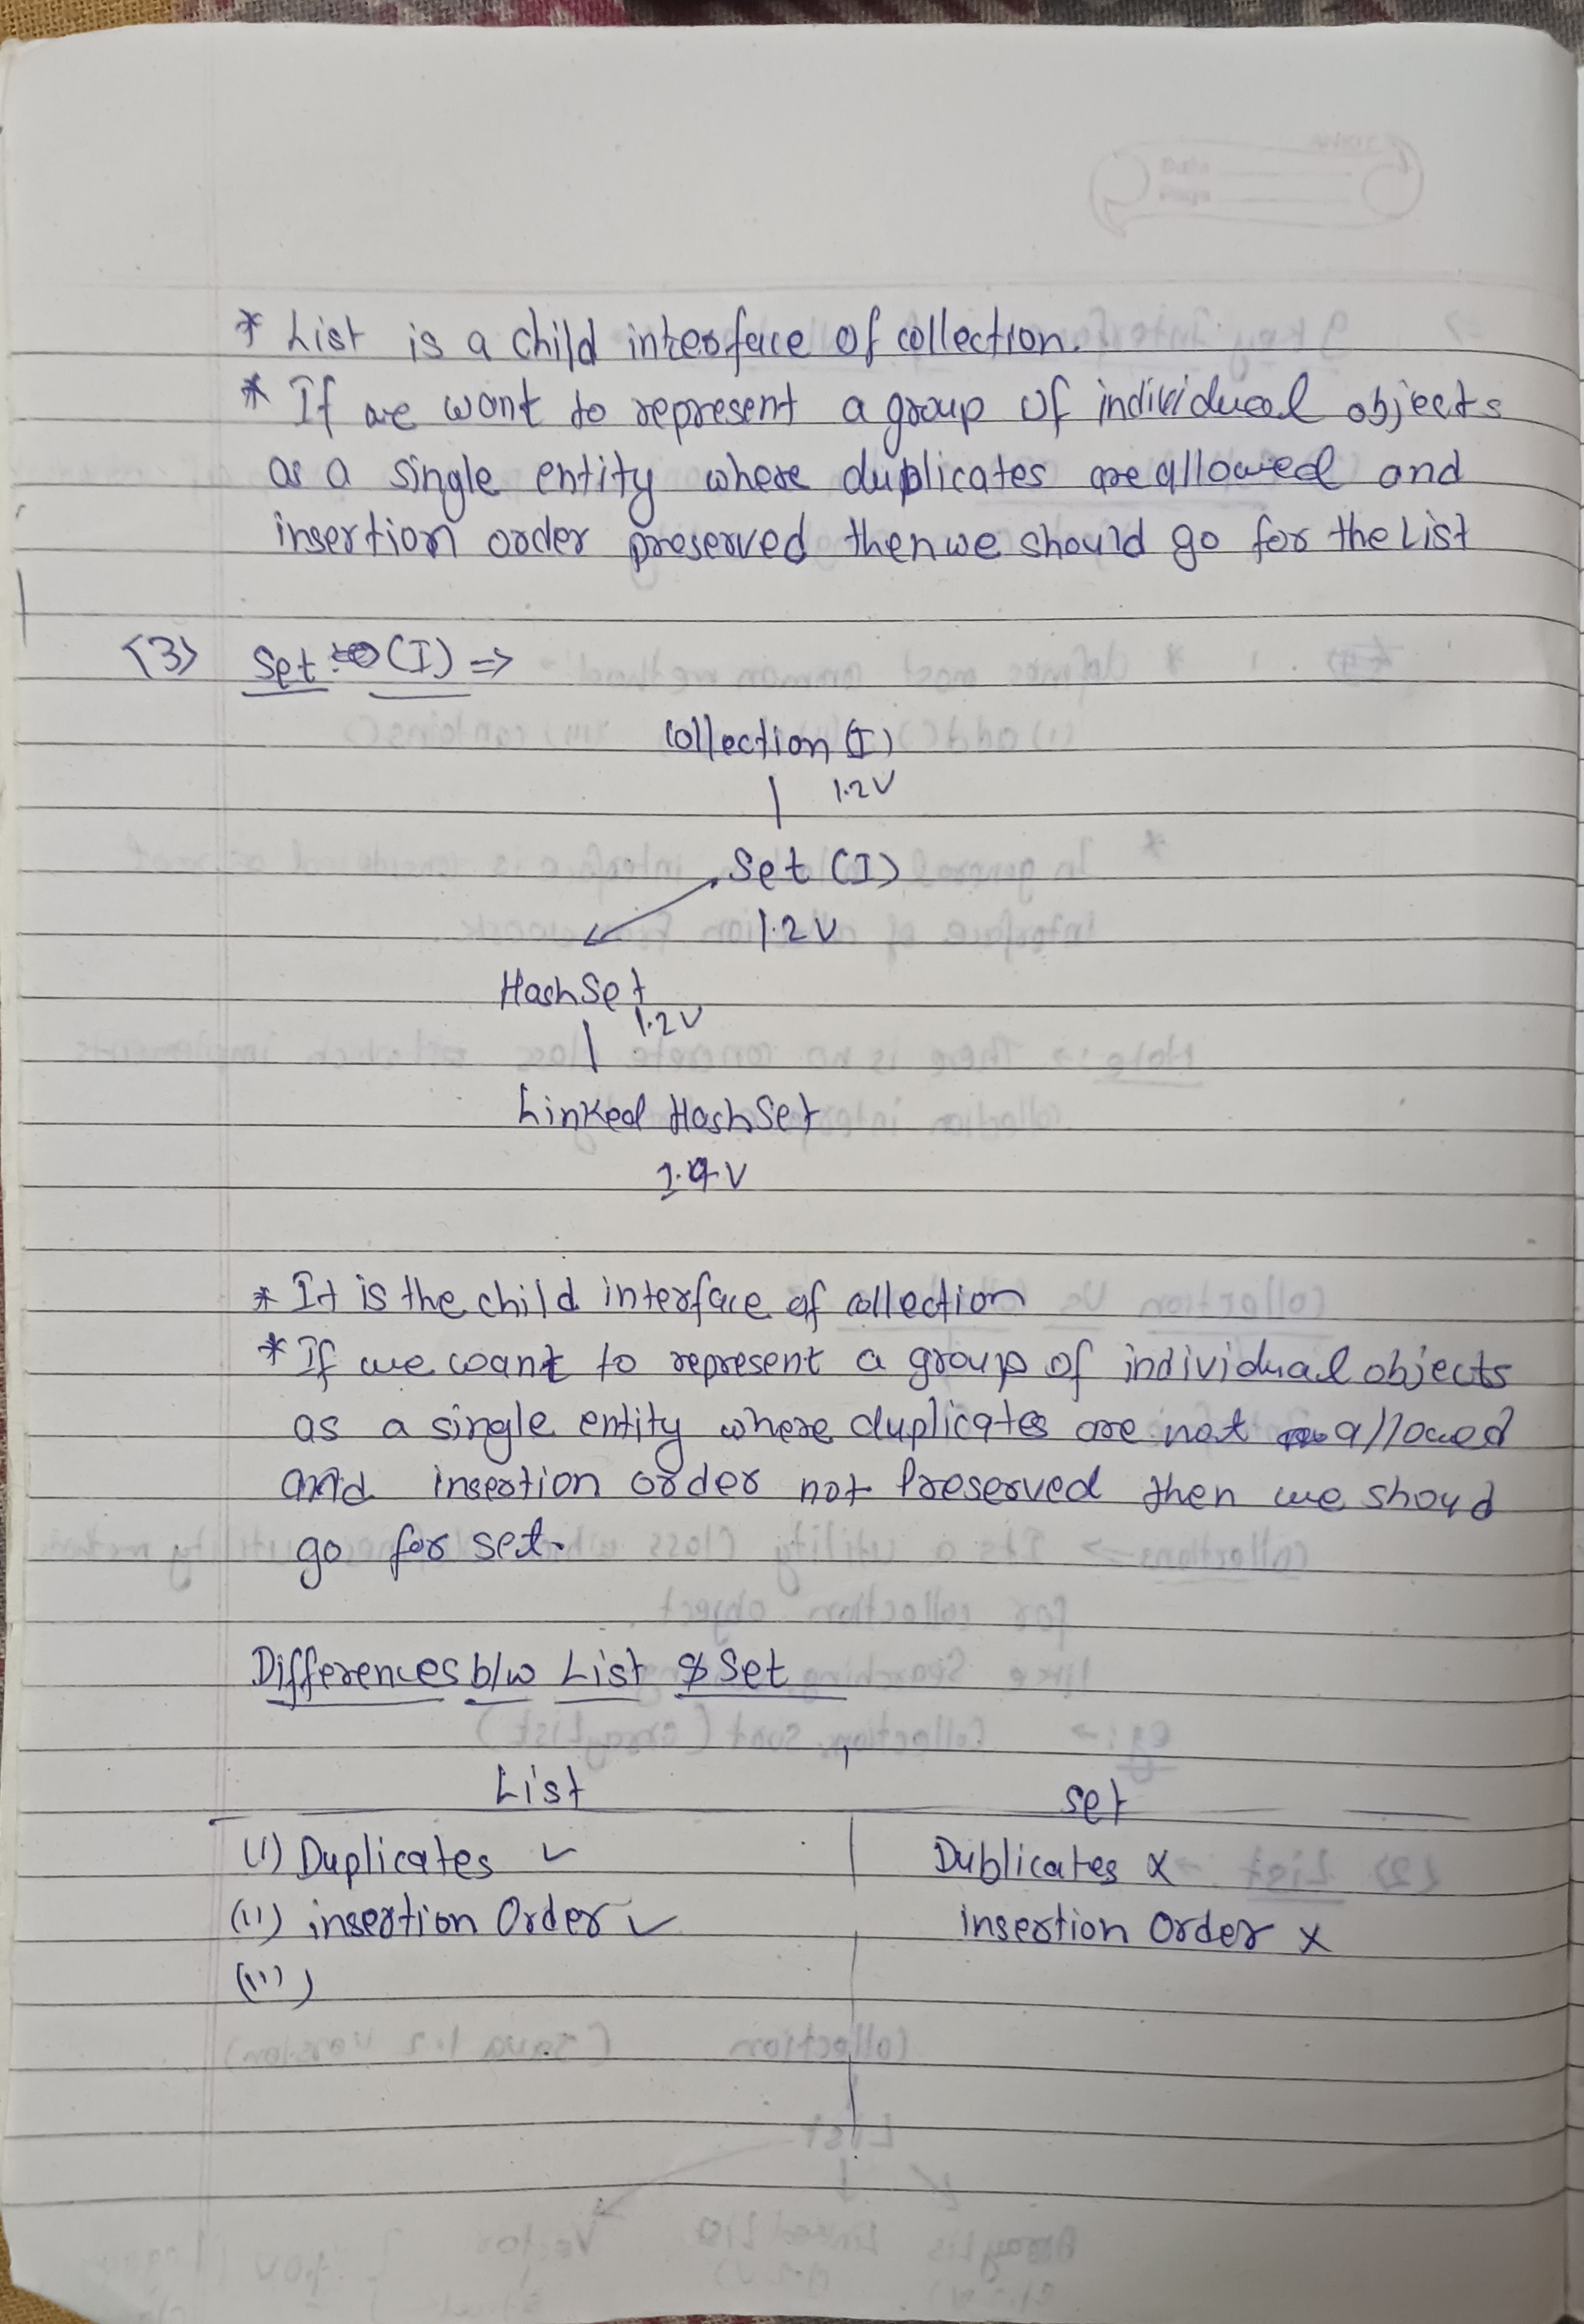 * List is a child interface of collection.
* If we want to represent a group of individual objects
as a single entity where duplicates are allowed and
insertion order preserved then we should go for the List
(3) Set (I) =>
Collection (I)
1.2V
Set (I)
1.2V
HashSet
1.2V
Linked HashSet
1.4V
* It is the child interface of collection
* If we want to represent a group of individual objects
as a single entity where duplicates are not allowed
and insertion order not Preserved then we shoud
go for set.
Differences b/w List & Set
List set
(i) Duplicates ✓ Dublicates x
(ii) insertion Order ✓ insertion Order x
(iii)